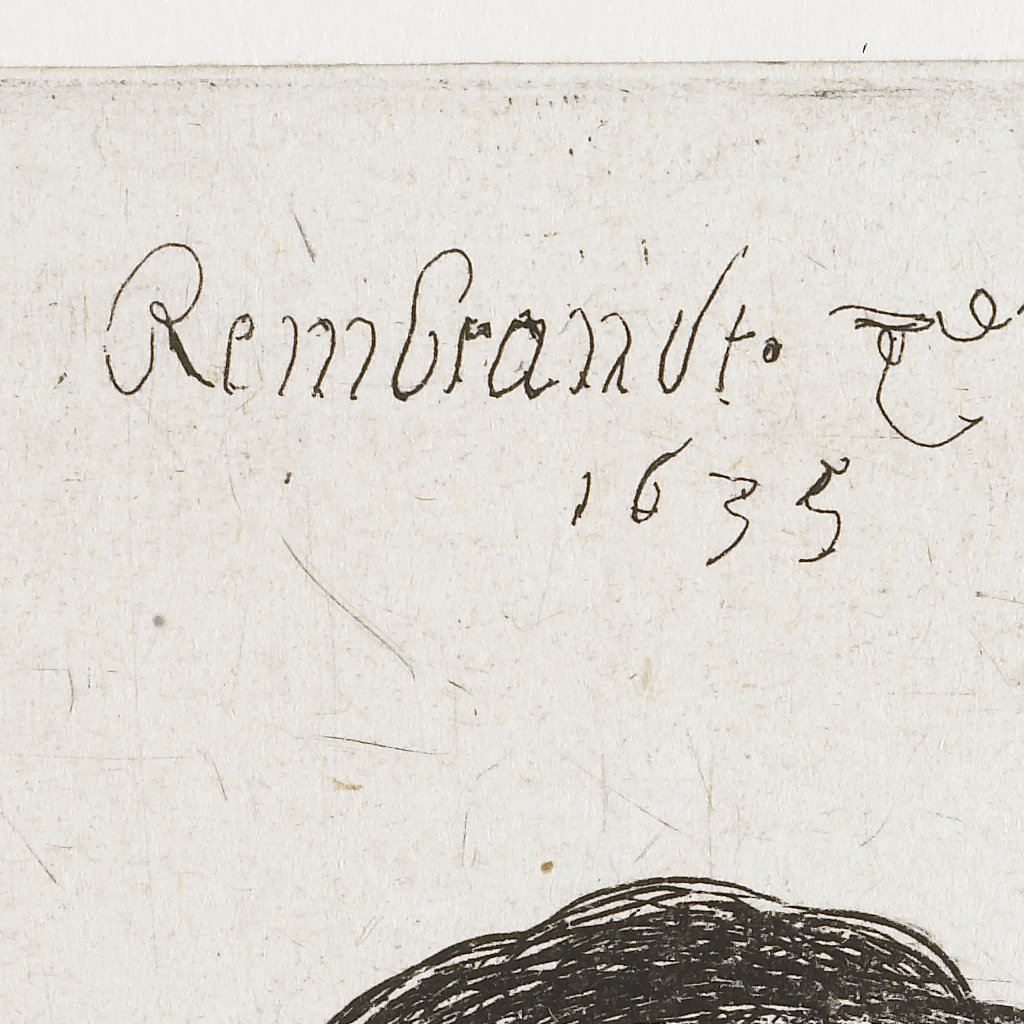 Rembrandt. fe
1635